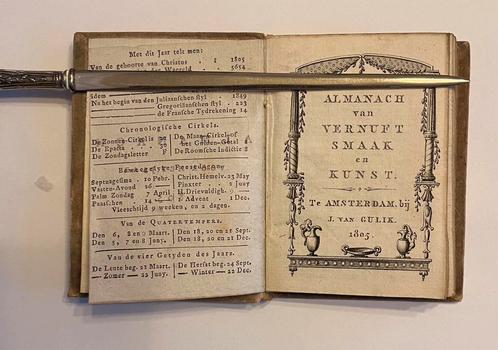 Met dit Jaar telt men:
Van de geboorte van Christus 1805
Waereld 5654
Juliaanschen ftyl 1849
Na het begin van den
Gregoriaanschen ftyl 223
de Franfche Tydrekening 14
Chronologifche Cirkels.
De Zonnen-Cirkel
De Maan-Cirkel of
De Epacta
het Gulden-Getal
De Zondagsletter F
De Roomfche Indictie 8
Septuagefima 10 Febr.
Christ. Hemelv. 23 May
Vasten-Avond 26
Pinxter 2 Juny
Palm Zondag 7 April
H. Drievuldigh. 9
Paaschen 14
1 Advent 1 Dec.
Vleeschtijd 9 weeken, en 2 dagen.
Van de QUATERTEMPERS.
Den 6, 8 en 9 Maart.
Den 18, 20 en 21 Sept.
Den 5, 7 en 8 Juny.
Den 18, 20 en 21 Dec.
Van de vier Getyden des Jaars.
De Lente beg. 21 Maart.
De Herfst beg. 24 Sept.
Zomer — 22 Juny.
Winter — 22 Dec.
ALMANACH
van
VERNUFT
SMAAK
en
KUNST.
Te AMSTERDAM, bij
J. VAN GULIK.
1805.